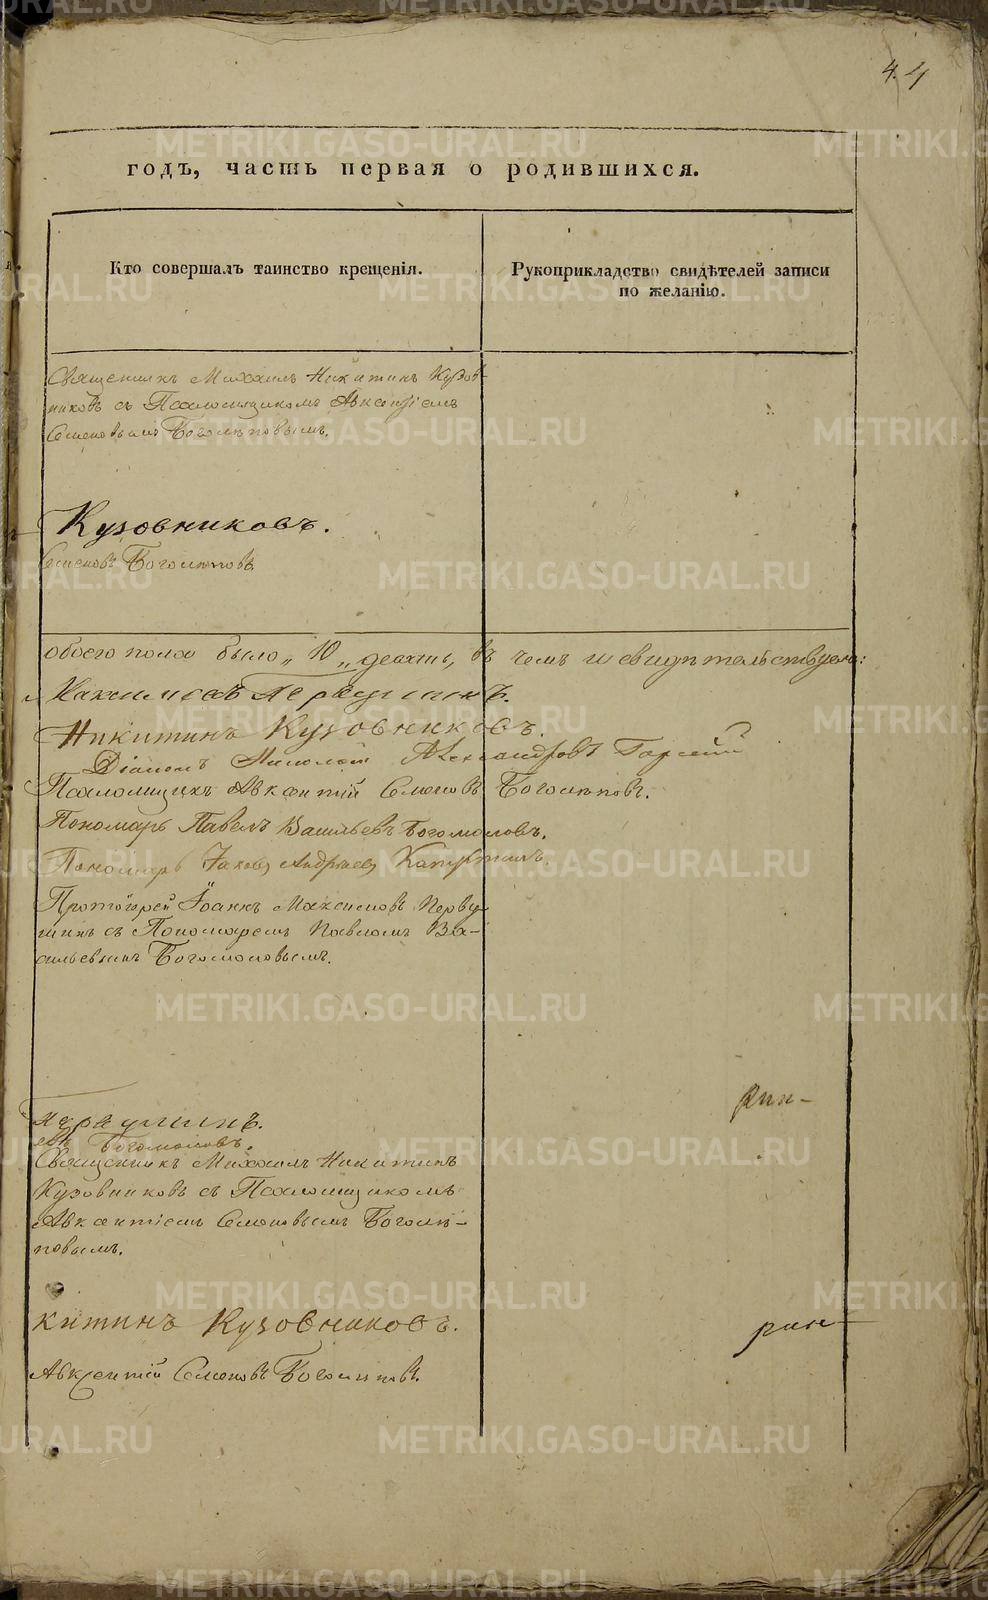 4. 4
годъ, часть первая о родившихся.
Кто совершалъ таинство крещенія.
Рукоприкладство свидѣтелей записи
по желанію.
Священникъ Михаилъ Никитинъ Кузов-
никовъ съ Псаломщикомъ Авксентіемъ
Семеновымъ Боголѣповымъ.
Кузовниковъ.
Семеновъ Боголѣповъ
обоего пола было „ 10 „ десять, въ чемъ и свидѣтельствуемъ:
Максимовъ Первушинъ.
Никитинъ Кузовниковъ.
Діаконъ Николай Александровъ
Псаломщикъ Авксентій Семеновъ Боголѣповъ.
Пономарь Павелъ Васильевъ Богомоловъ.
Пономарь Іаковъ Андреевъ
Протоіерей Іоаннъ Максимовъ Перву-
шинъ съ Пономаремъ Павломъ Ва-
сильевымъ Богомоловымъ.
Первушинъ.
евъ Богомоловъ.
Священникъ Михаилъ Никитинъ
Кузовниковъ съ Псаломщикомъ
Авксентіемъ Семеновымъ Боголѣ-
повымъ.
китинъ Кузовниковъ.
Авксентій Семеновъ Боголѣповъ.
METRIKI.GASO-URAL.RU